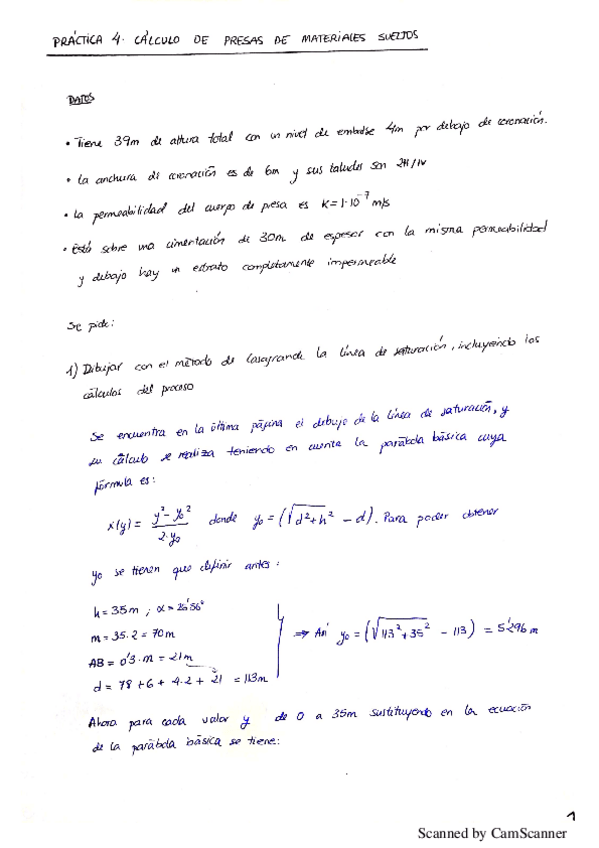 PRÁCTICA 4. CÁLCULO DE PRESAS DE MATERIALES SUELTOS
DATOS
• Tiene 39m de altura total con un nivel de embalse 4m por debajo de coronación.
• La anchura de coronación es de 6m y sus taludes son 2H/1V
• La permeabilidad del cuerpo de presa es K=1·10⁻⁷ m/s
• Está sobre una cimentación de 30m de espesor con la misma permeabilidad
y debajo hay un estrato completamente impermeable
Se pide:
1) Dibujar con el método de Casagrande la línea de saturación, incluyendo los
cálculos del proceso
Se encuentra en la última página el dibujo de la línea de saturación, y
su cálculo se realiza teniendo en cuenta la parábola básica cuya
fórmula es:
x(y) = (y² - y₀²) / (2·y₀) donde y₀ = (√(d²+h²) - d). Para poder obtener
y₀ se tienen que definir antes:
h = 35m ; α = 26'56°
m = 35·2 = 70m
AB = 0'3·m = 21m
d = 78 + 6 + 4·2 + 21 = 113m
⇒ Así y₀ = (√(113² + 35²) - 113) = 5'296 m
Ahora para cada valor y de 0 a 35m sustituyendo en la ecuación
de la parábola básica se tiene:
1
Scanned by CamScanner